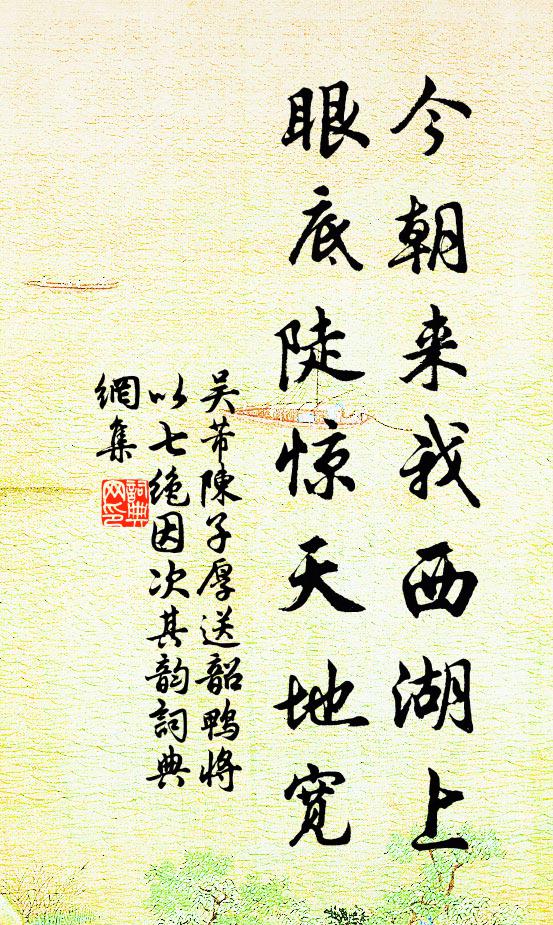 今朝来我西湖上
眼底陡惊天地宽
吴芾陳子厚送韶鴨將
以七绝因次其韵詞典
網集
詞典
网印